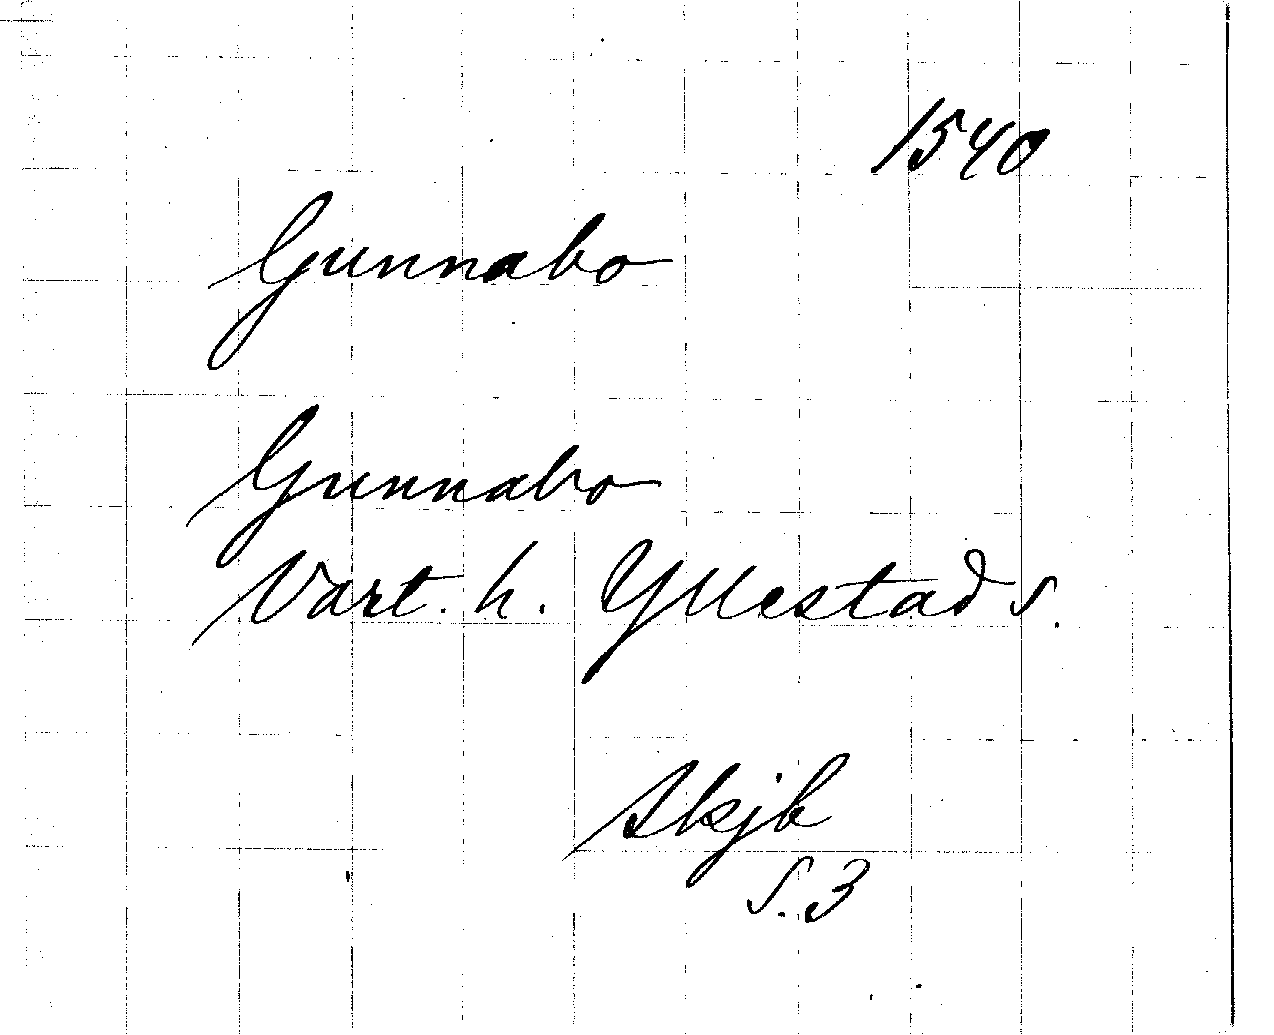 1540
Gunnabo
Gunnabo
Vart. h. Yllestads s.
Skjb
s. 3